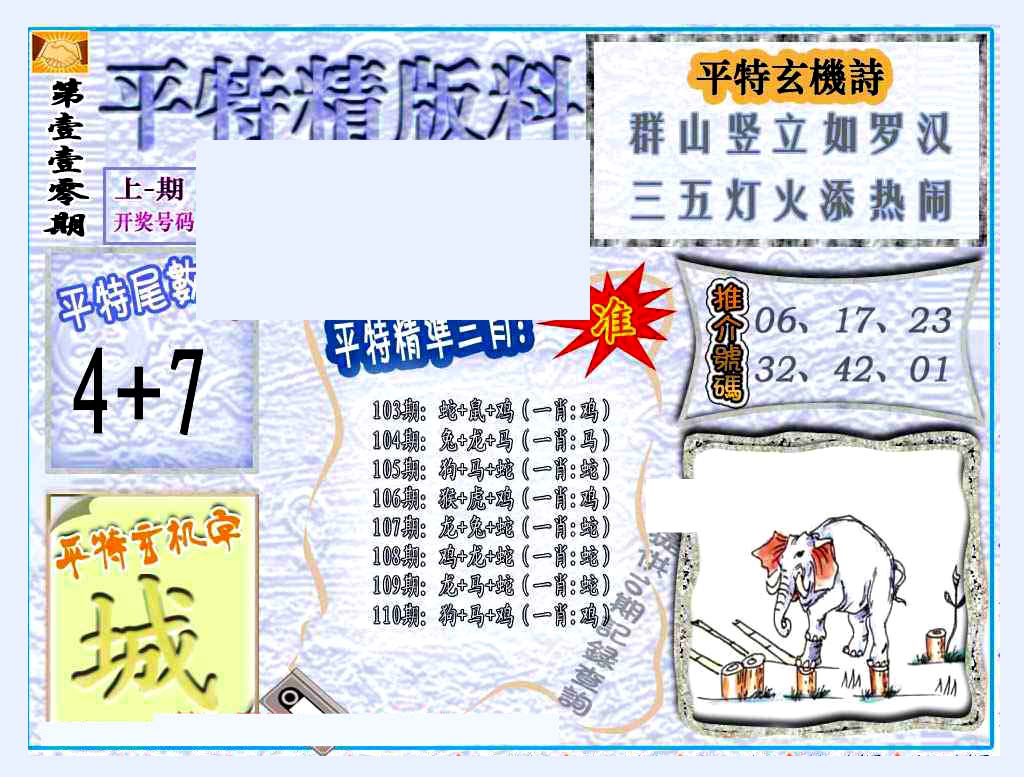 第壹壹零期
平特精版料
上-期
开奖号码
平特玄機詩
群山竖立如罗汉
三五灯火添热闹
平特尾數
4+7
平特精準三肖!
准
推介號碼
06、17、23
32、42、01
103期: 蛇+鼠+鸡(一肖:鸡)
104期: 兔+龙+马(一肖:马)
105期: 狗+马+蛇(一肖:蛇)
106期: 猴+虎+鸡(一肖:鸡)
107期: 龙+兔+蛇(一肖:蛇)
108期: 鸡+龙+蛇(一肖:蛇)
109期: 龙+马+蛇(一肖:蛇)
110期: 狗+马+鸡(一肖:鸡)
平特玄机字
城
提供6期記錄查詢